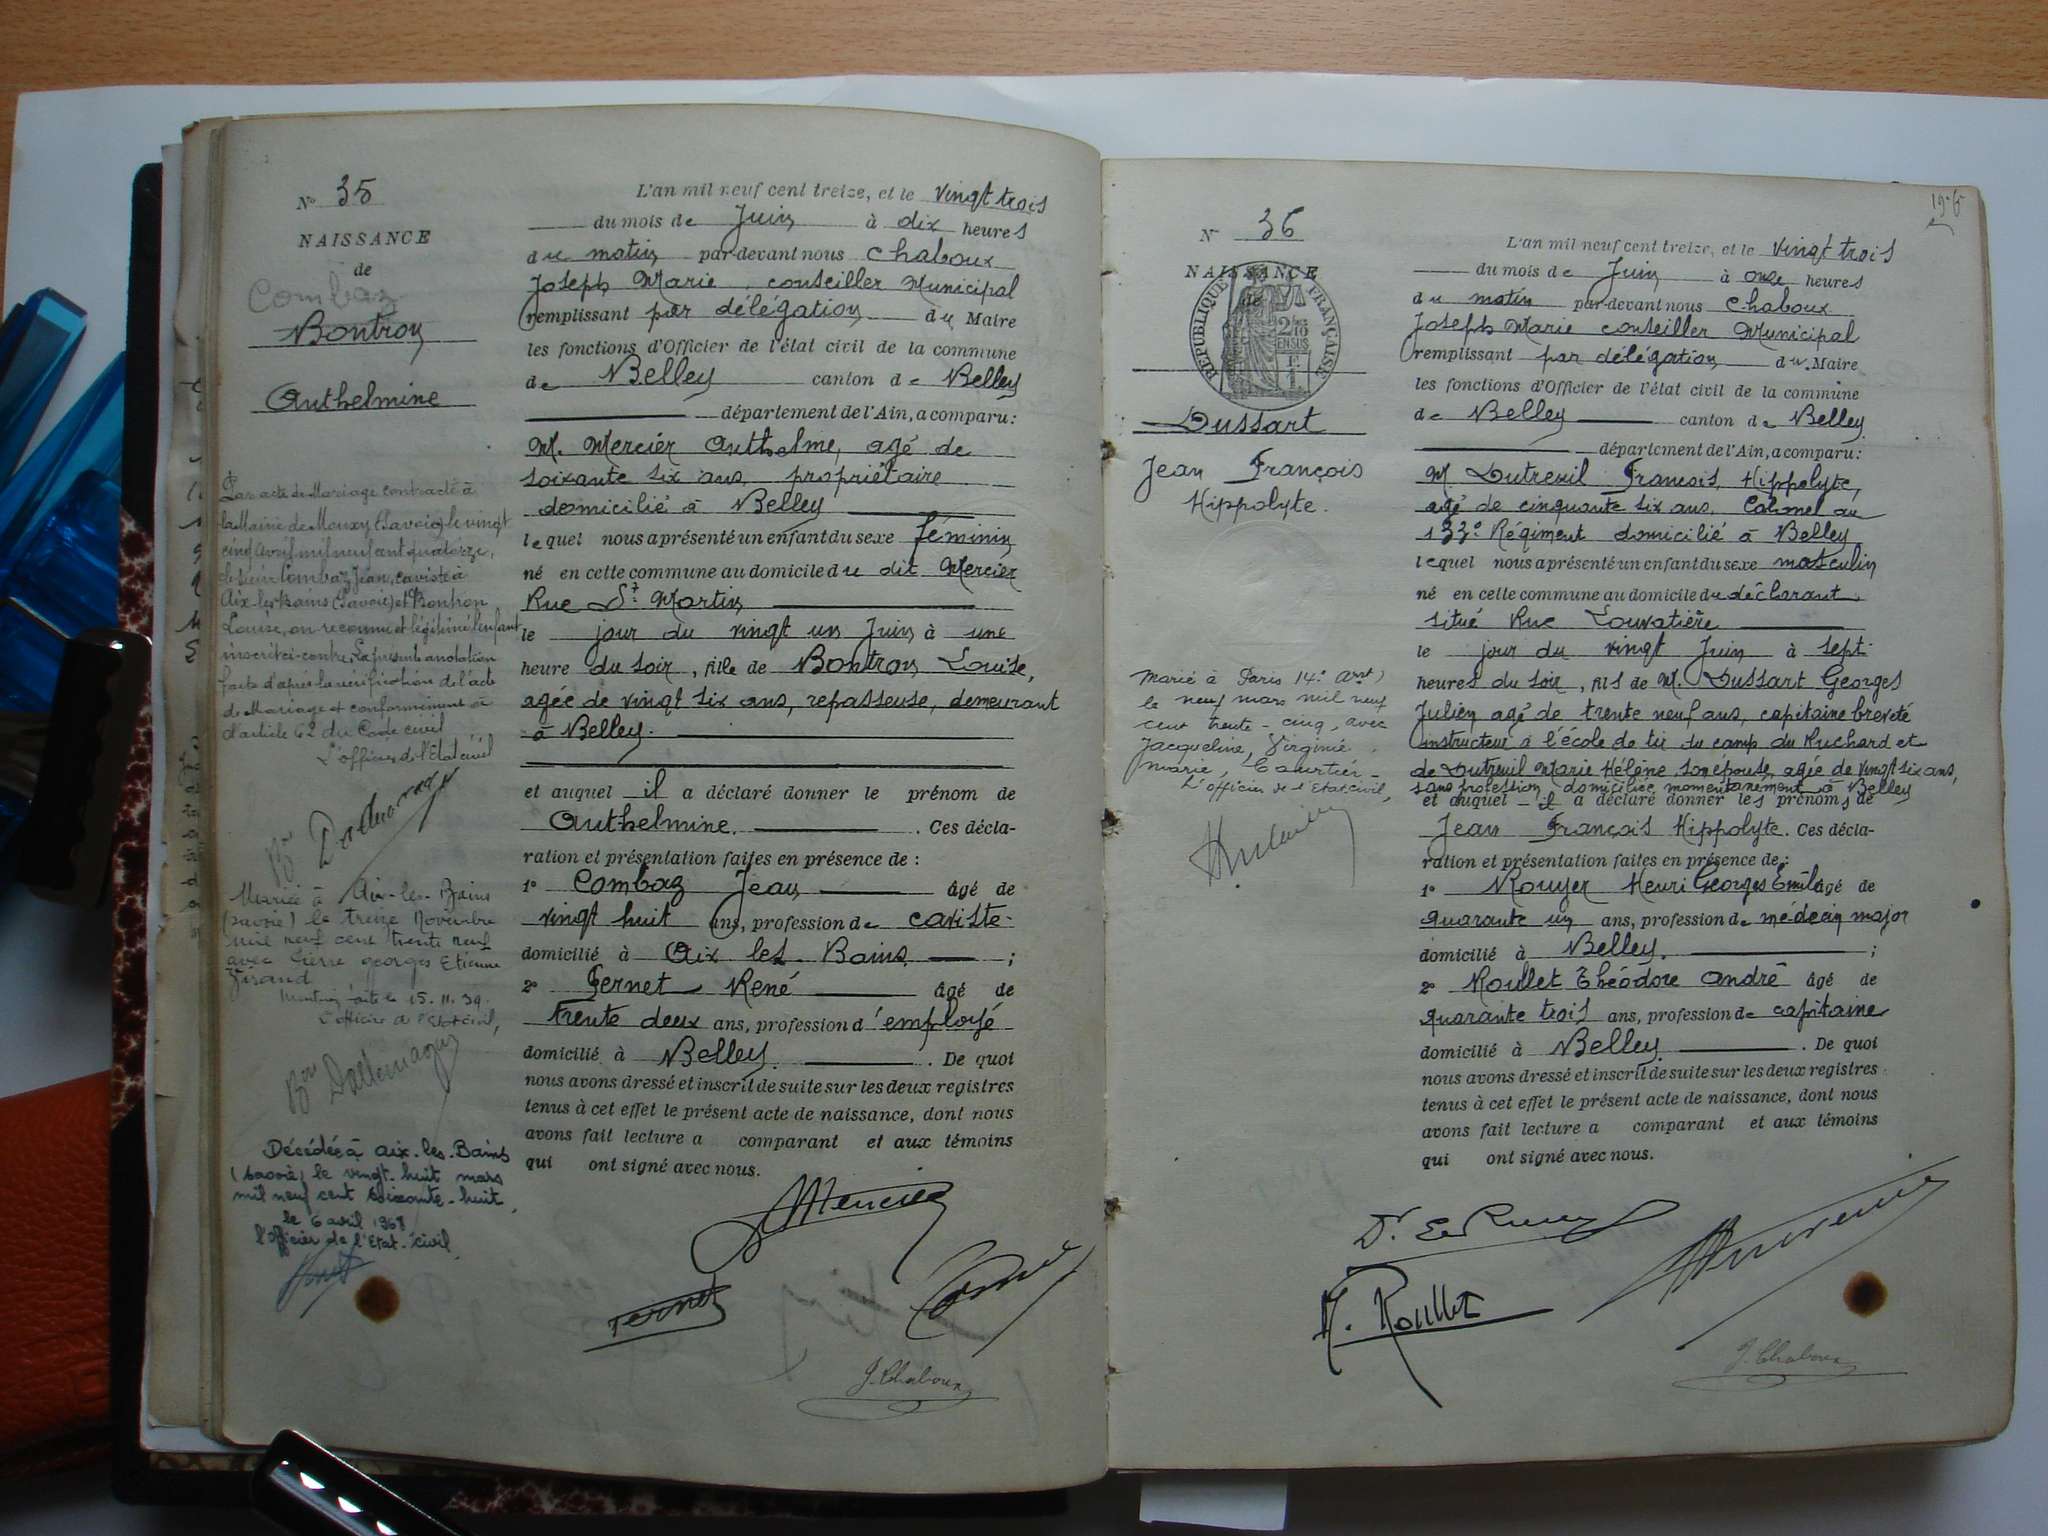 N° 35
NAISSANCE
de
Combaz
Bontron
Anthelmine
Par acte de Mariage contracté à
la Mairie de Mouxy (Savoie) le vingt
cinq avril mil neuf cent quatorze,
le sieur Combaz Jean, caviste à
Aix-les-Bains (Savoie) et Bontron
Louise, on reconnu et légitimé l'enfant
inscrit ci-contre. La présente anotation
faite d'après la vérification de l'acte
de Mariage et conformément à
l'article 62 du Code civil
L'officier de l'Etat civil
Mariée à Aix-les-Bains
(Savoie) le treize Novembre
mil neuf cent trente neuf
avec Pierre georges Etienne
Girand
Mention faite le 15.11.39.
L'officier de l'Etat civil,
Bon Dallemagne
Décédée à Aix-les-Bains
(Savoie) le vingt-huit mars
mil neuf cent soixante-huit,
le 6 avril 1968
l'officier de l'Etat-civil,
L'an mil neuf cent treize, et le vingt trois
du mois de Juin à dix heures
du matin par-devant nous Chaboux
Joseph Marie, conseiller Municipal
remplissant par délégation du Maire
les fonctions d'Officier de l'état civil de la commune
de Belley canton de Belley
département de l'Ain, a comparu :
M. Mercier Anthelme, agé de
soixante six ans, propriétaire
domicilié à Belley
lequel nous a présenté un enfant du sexe féminin
né en cette commune au domicile du dit Mercier
Rue St Martin
le jour du vingt un Juin à une
heure du soir, fille de Bontron Louise,
agée de vingt six ans, repasseuse, demeurant
à Belley.
et auquel il a déclaré donner le prénom de
Anthelmine. Ces décla-
ration et présentation faites en présence de :
1° Combaz Jean âgé de
vingt huit ans, profession de caviste
domicilié à Aix les Bains ;
2° Pernet René âgé de
trente deux ans, profession d'employé
domicilié à Belley. De quoi
nous avons dressé et inscrit de suite sur les deux registres
tenus à cet effet le présent acte de naissance, dont nous
avons fait lecture a comparant et aux témoins
qui ont signé avec nous.
AMercier
Pernet
J. Chaboux
N° 36
NAISSANCE
de
RÉPUBLIQUE FRANÇAISE
Dussart
Jean François
Hippolyte.
Marié à Paris 14e Arrt)
le neuf mars mil neuf
cent trente-cinq, avec
Jacqueline, Virginie,
Marie, Courtier-
L'officier de l'Etat civil,
L'an mil neuf cent treize, et le vingt trois
du mois de Juin à onze heures
du matin par-devant nous Chaboux
Joseph Marie conseiller Municipal
remplissant par délégation du Maire
les fonctions d'Officier de l'état civil de la commune
de Belley canton de Belley
département de l'Ain, a comparu :
M Dutreuil François, Hippolyte,
agé de cinquante six ans, Colonel au
133e Régiment domicilié à Belley
lequel nous a présenté un enfant du sexe masculin
né en cette commune au domicile du déclarant
situé Rue Louvatière
le jour du vingt Juin à sept
heures du soir, fils de M. Dussart Georges
Julien agé de trente neuf ans, capitaine breveté
instructeur à l'école de tir du camp du Ruchard et
de Dutreuil Marie Hélène son épouse, agée de vingt six ans,
sans profession, domiciliée momentanément à Belley
et auquel il a déclaré donner les prénoms de
Jean François Hippolyte. Ces décla-
ration et présentation faites en présence de :
1° Rouyer Henri Georges Emile âgé de
quarante un ans, profession de médecin major
domicilié à Belley. ;
2° Roullet Théodore André âgé de
quarante trois ans, profession de capitaine
domicilié à Belley. De quoi
nous avons dressé et inscrit de suite sur les deux registres
tenus à cet effet le présent acte de naissance, dont nous
avons fait lecture a comparant et aux témoins
qui ont signé avec nous.
Roullet
J. Chaboux